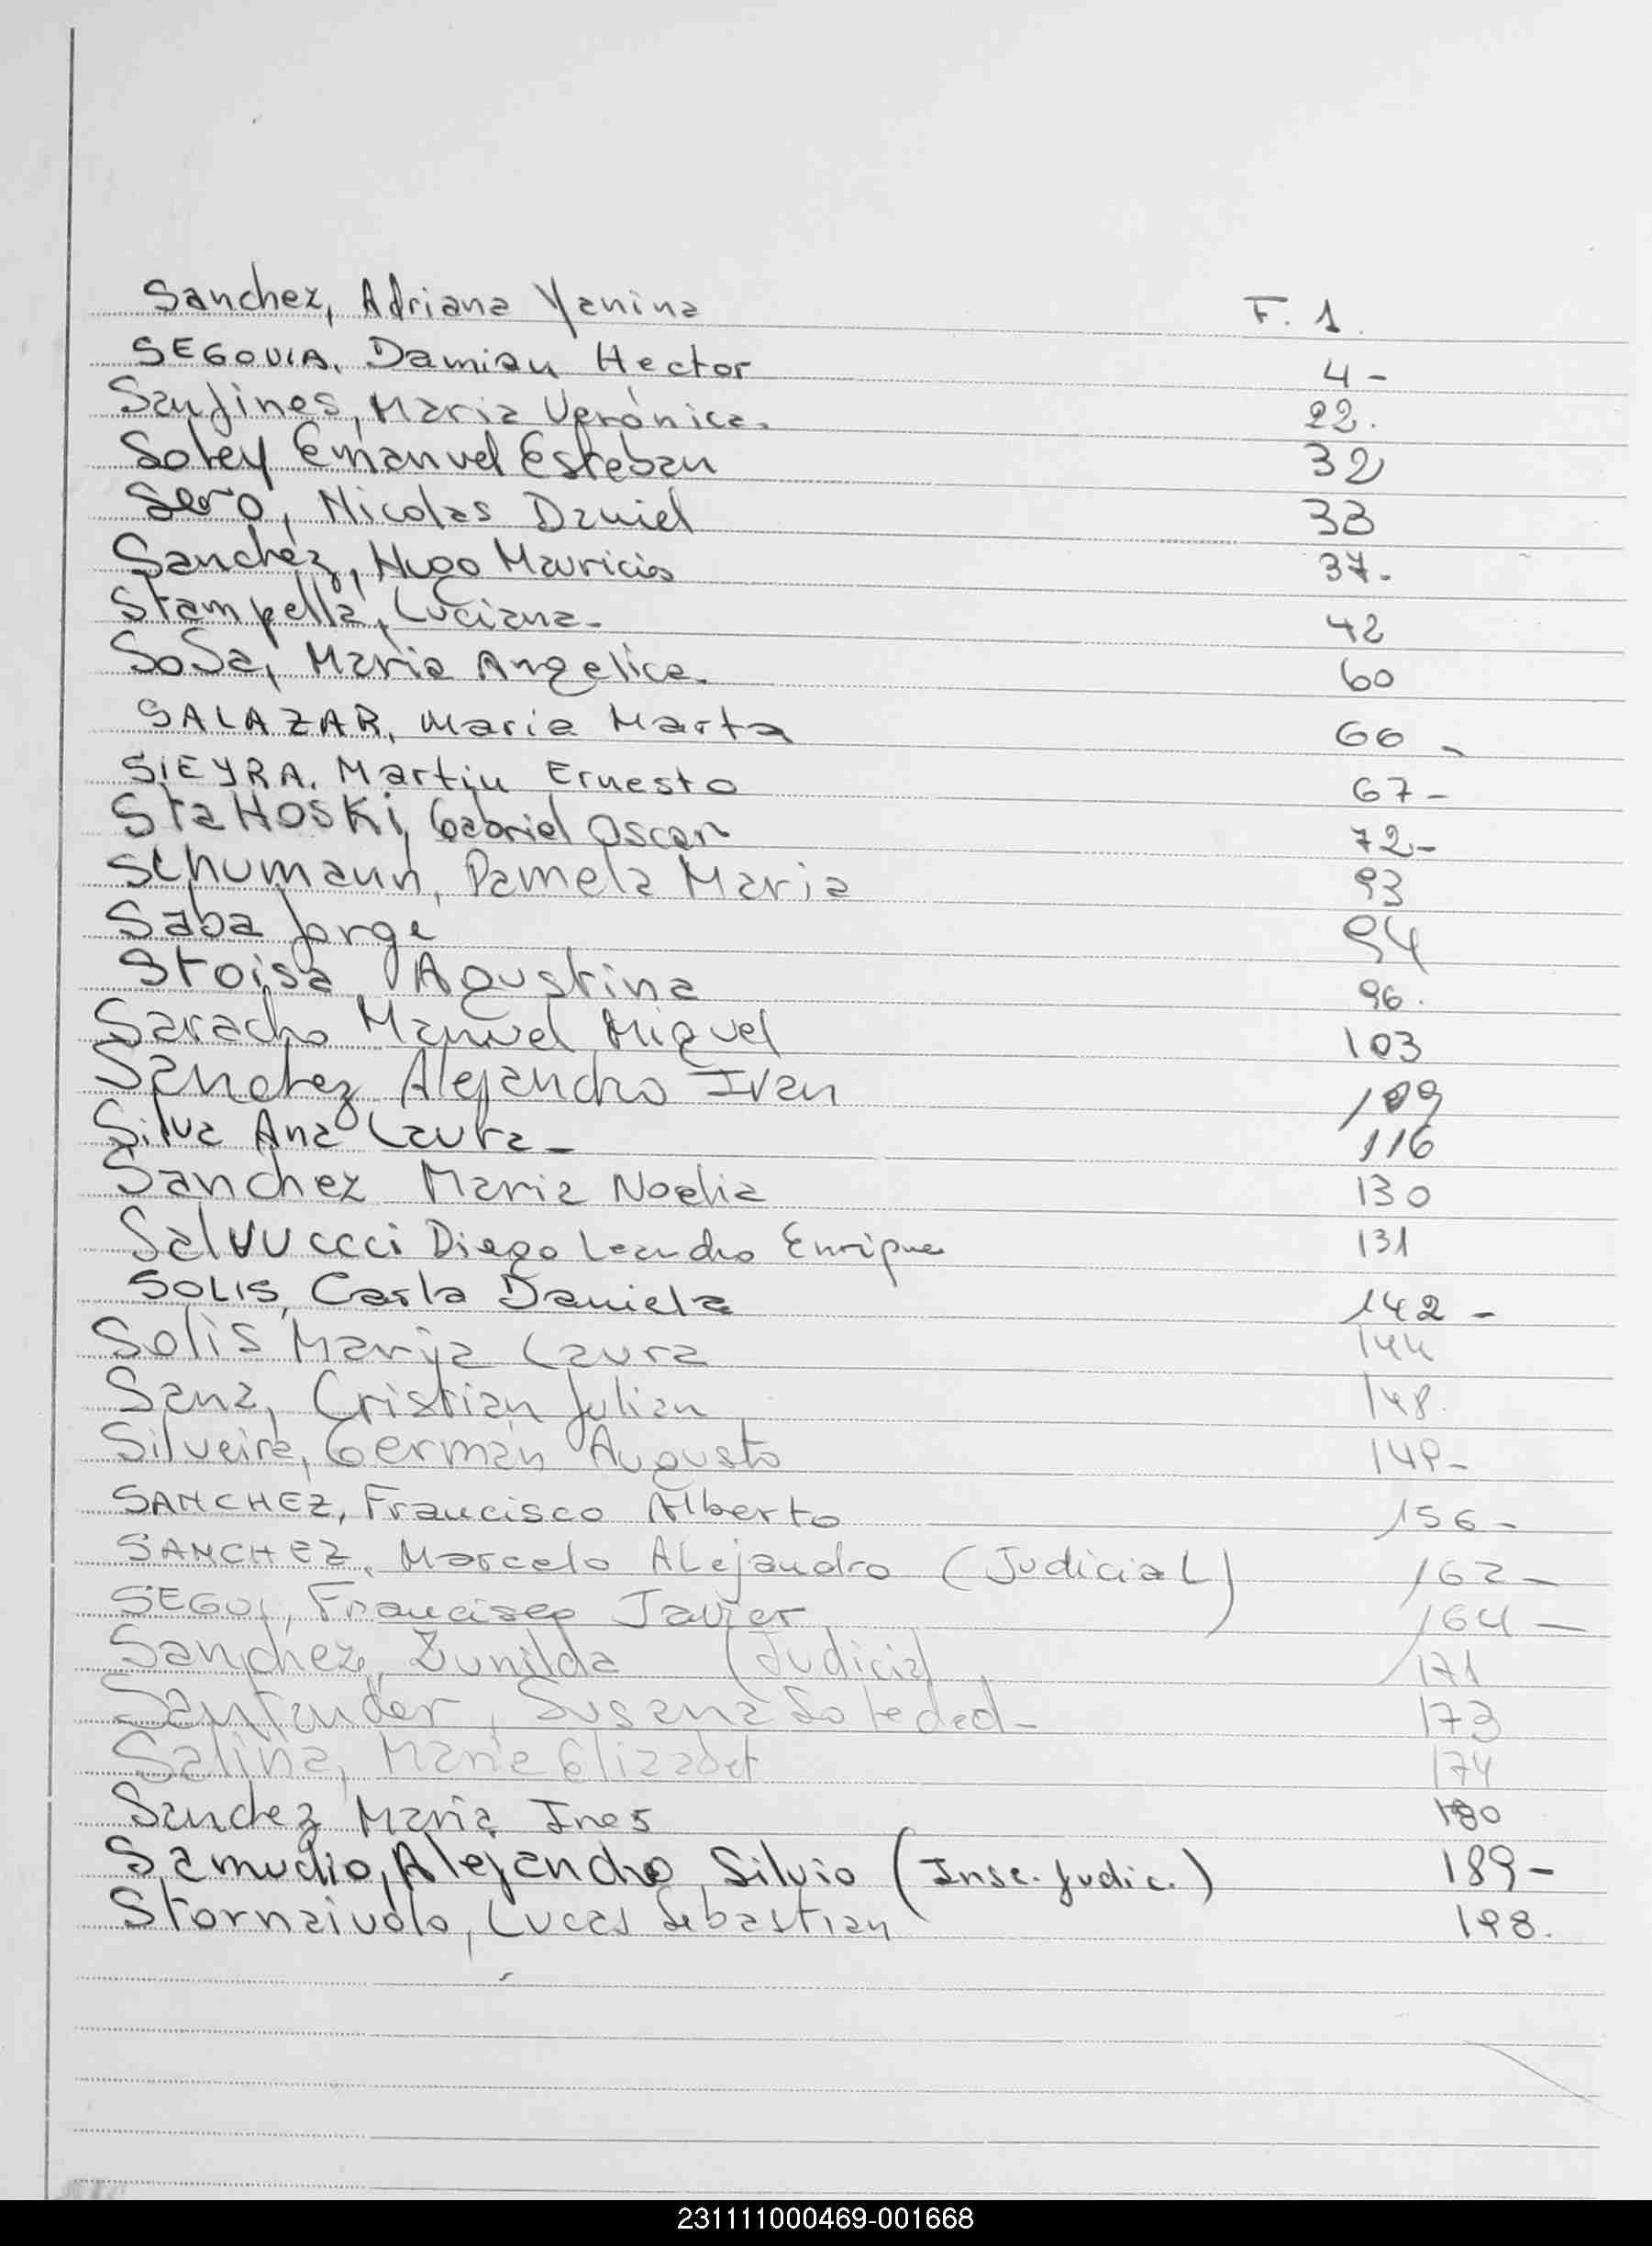 Sanchez, Adriana Yanina F. 1.
SEGOVIA, Damian Hector 4-
Sanjines, Maria Verónica. 22.
Sotey Emanuel Esteban 32
Sero, Nicolas Daniel 33
Sanchez, Hugo Mauricio 37.
Stampella, Luciana- 42
Sosa, Maria Angelica. 60
SALAZAR, Maria Marta 66-
SIEYRA, Martin Ernesto 67-
StaHOSKi, Gabriel Oscar 72-
Schumann, Pamela Maria 93
Saba Jorge 94
Stoisa Agustina 96.
Saracho Manuel Miguel 103
Sanchez Alejandro Ivan 109
Silva Ana Laura- 116
Sanchez Maria Noelia 130
Salvuccci Diego Leandro Enrique 131
SOLIS, Carla Daniela 142-
Solis Maria Laura 144
Sana, Cristian Julian 148.
Silveira, German Augusto 149-
SANCHEZ, Francisco Alberto 156-
SANCHEZ, Marcelo Alejandro (Judicial) 162-
SEGUI, Francisco Javier 164-
Sanchez, Zunilda (Judicial 171
Santander, Susana Soledad- 173
Salina, Maria Elizabet 174
Sanchez Maria Ines 180
Samudio, Alejandro Silvio (Insc. Judic.) 189-
Stornaivolo, Lucas Sebastian 198.
231111000469-001668